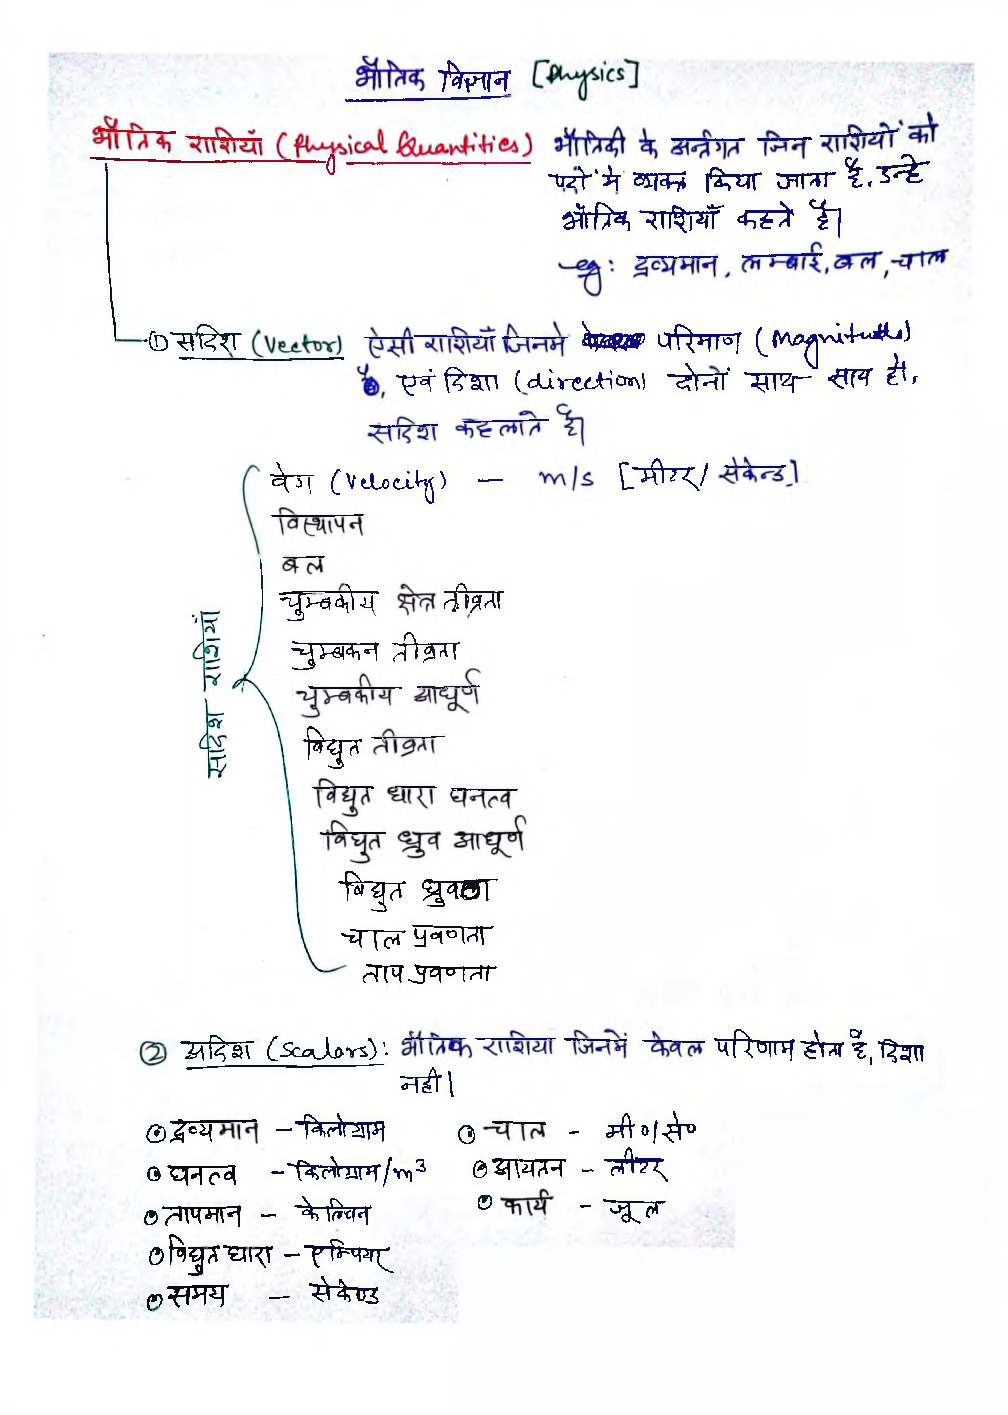 भौतिक विज्ञान [Physics]
भौतिक राशियाँ (Physical Quantities) भौतिकी के अर्न्तगत जिन राशियों को
पदों में व्यक्त किया जाता है, उन्हे
भौतिक राशियाँ कहते है।
eg: द्रव्यमान, लम्बाई, बल, चाल
① सदिश (Vector) ऐसी राशियाँ जिनमे परिमाण (Magnitude)
है, एवं दिशा (direction) दोनों साथ साथ हो,
सदिश कहलाते है।
सदिश राशियां
वेग (Velocity) — m/s [मीटर/सेकेन्ड]
विस्थापन
बल
चुम्बकीय क्षेत्र तीव्रता
चुम्बकन तीव्रता
चुम्बकीय आघूर्ण
विद्युत तीव्रता
विद्युत धारा घनत्व
विद्युत ध्रुव आघूर्ण
विद्युत ध्रुवता
चाल प्रवणता
ताप प्रवणता
② अदिश (Scalars): भौतिक राशिया जिनमें केवल परिणाम होता है, दिशा
नही।
द्रव्यमान – किलोग्राम चाल - मी०/से०
घनत्व - किलोग्राम/m³ आयतन - लीटर
तापमान – केल्विन कार्य - जूल
विद्युत धारा – एम्पियर
समय — सेकेण्ड